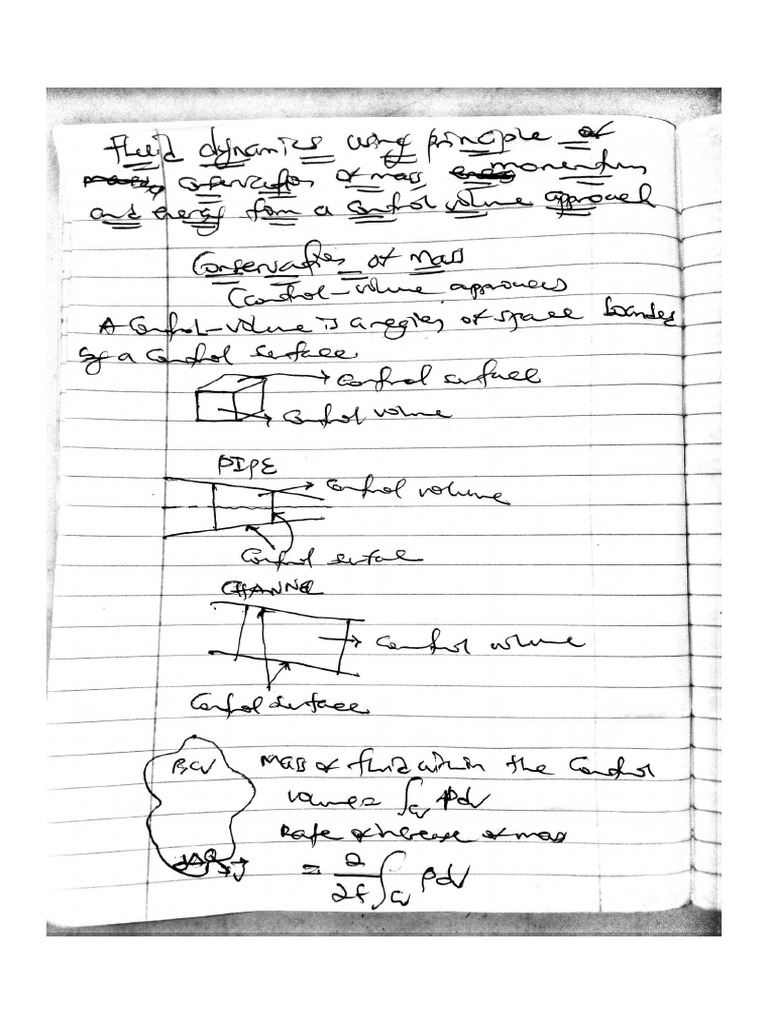 Fluid dynamics using principle of
conservation of mass momentum
and energy from a control volume approach
Conservation of mass
(control-volume approach
A control-volume is a region of space bounded
by a control surface
control surface
control volume
PIPE
control volume
control surface
CHANNEL
control volume
control surface
ρ, CV
mass of fluid within the control
volume = ∫cv ρdV
Rate of increase of mass
= ∂/∂t ∫cv ρdV